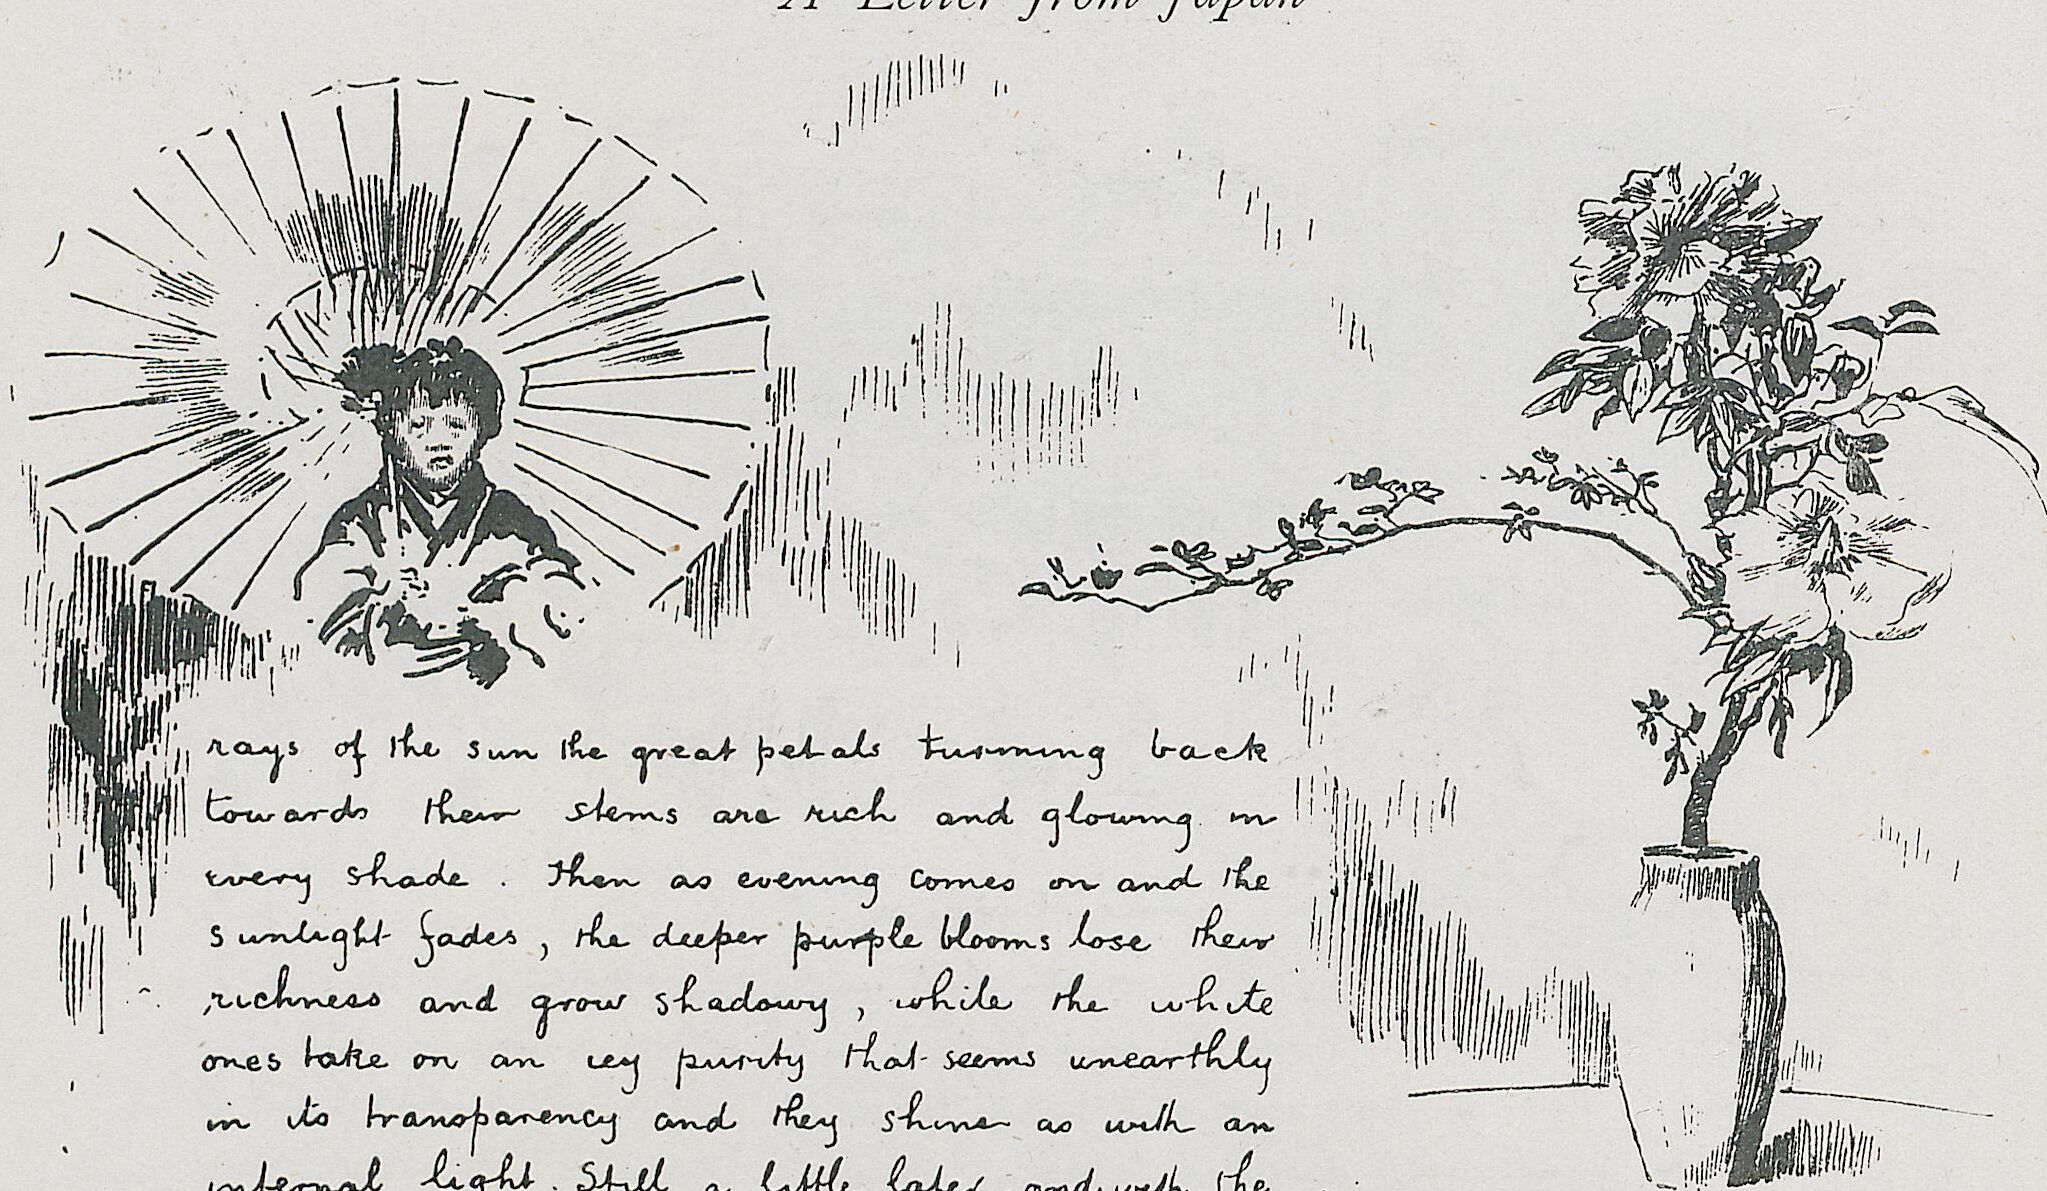 A Letter from Japan
rays of the sun the great petals turning back
towards their stems are rich and glowing in
every shade. Then as evening comes on and the
sunlight fades, the deeper purple blooms lose their
richness and grow shadowy, while the white
ones take on an icy purity that seems unearthly
in its transparency and they shine as with an
internal light. Still a little later and with the